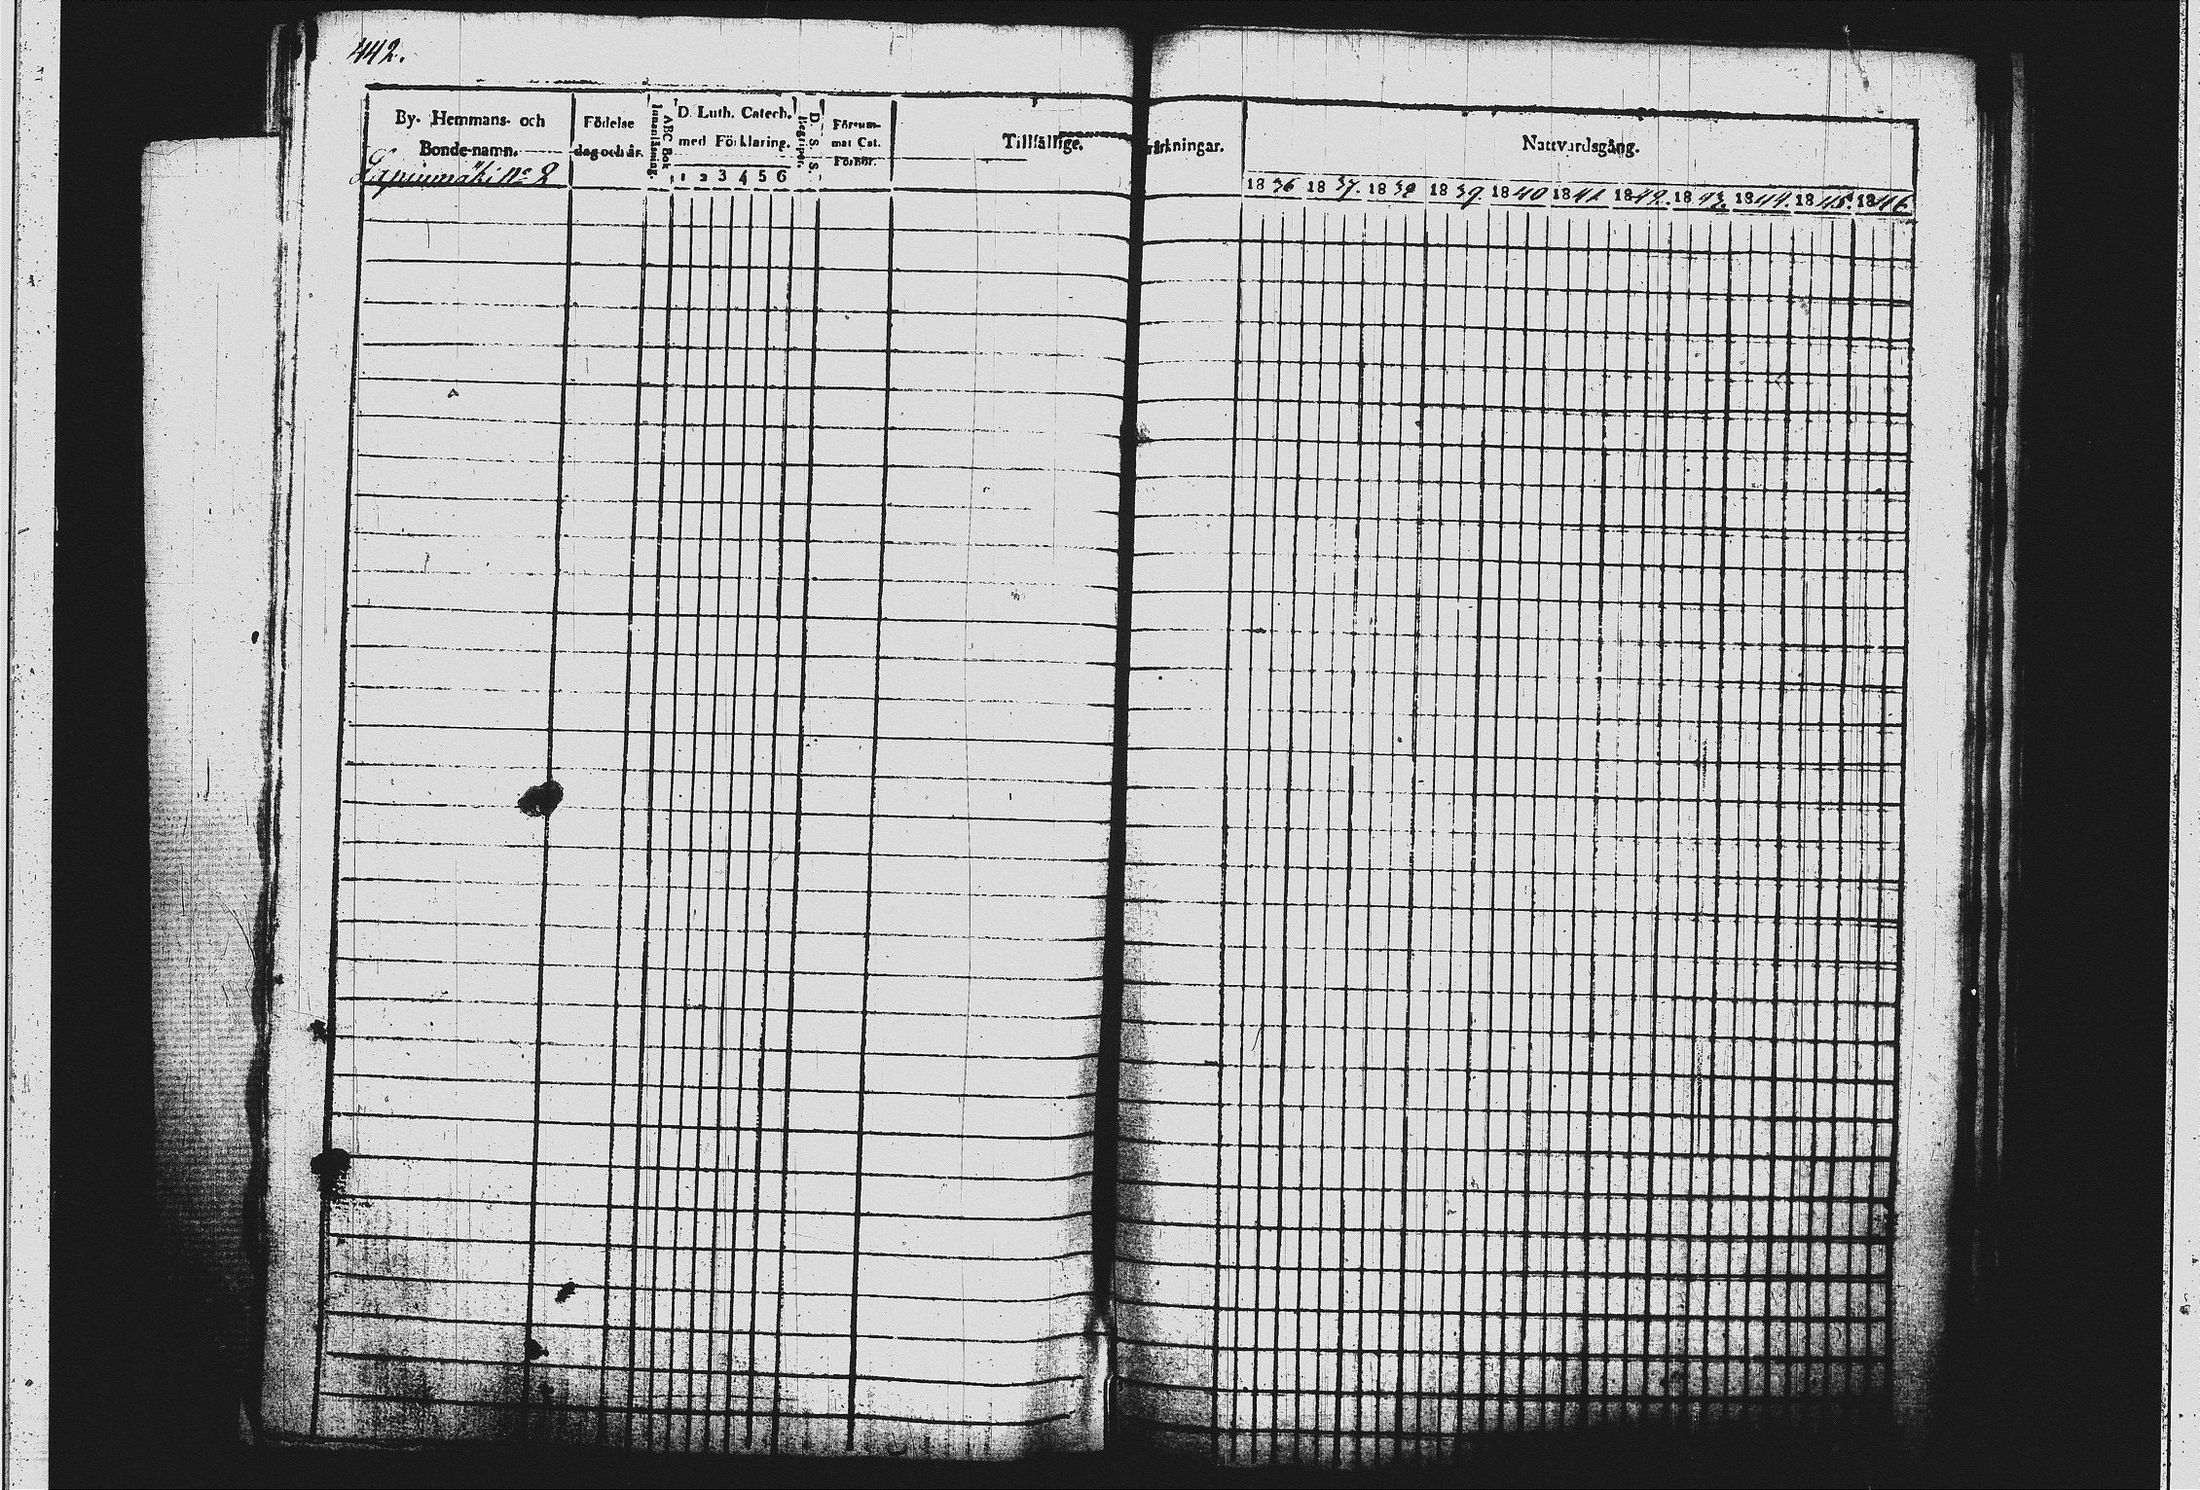 442.
By- Hemmans- och
Bonde-namn.
Födelse
dag och år.
ABC Bok
Innanläsning.
D. Luth. Catech.
med Förklaring.
1 2 3 4 5 6
D. S. S.
Begriper.
Försum-
mat Cat.
Förhör.
Tillfällige
märkningar.
Nattvardsgång.
1836 1837. 1838 1839. 1840 1841 1842. 1843. 1844. 1845. 1846
N:o 2